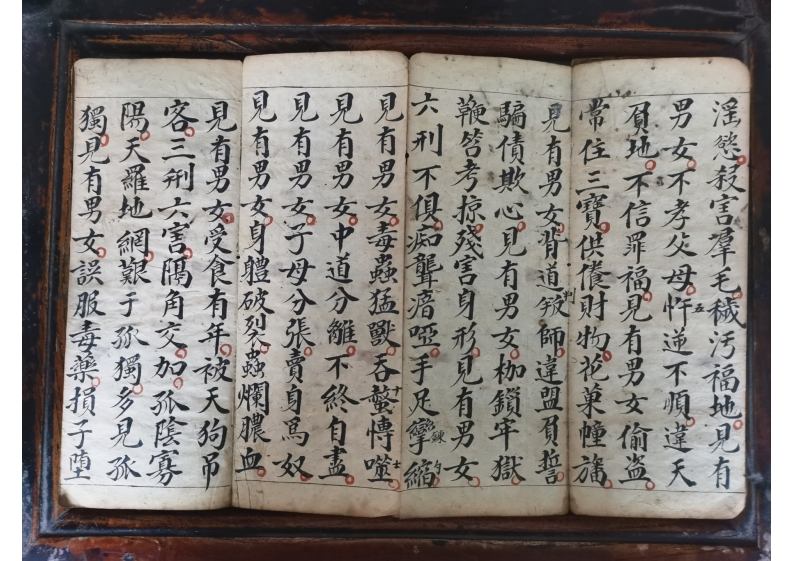 淫慾殺害羣毛穢汚福地見有
男女不孝父母忤逆不順違天
負地不信罪福見有男女偷盜
常住三寶供儭財物花菓幢旛
見有男女背道叛師違盟負誓
騙債欺心見有男女枷鎖牢獄
鞭笞考掠殘害身形見有男女
六刑不俱痴聾瘖啞手足攣縮
見有男女毒蟲猛獸吞螫愽噬
見有男女中道分離不終自盡
見有男女子母分張賣身爲奴
見有男女身體破裂蟲爛膿血
見有男女受食有年被天狗吊
客三刑六害隅角交加孤陰寡
陽天羅地網艱于孤獨多見孤
獨見有男女誤服毒藥損子墮